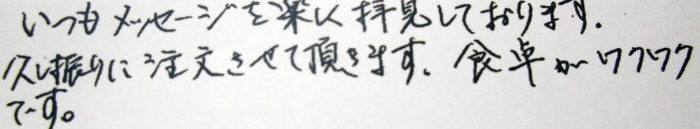 いつもメッセージを楽しく拝見しております.
久し振りに注文させて頂きます。食卓がワクワク
です。